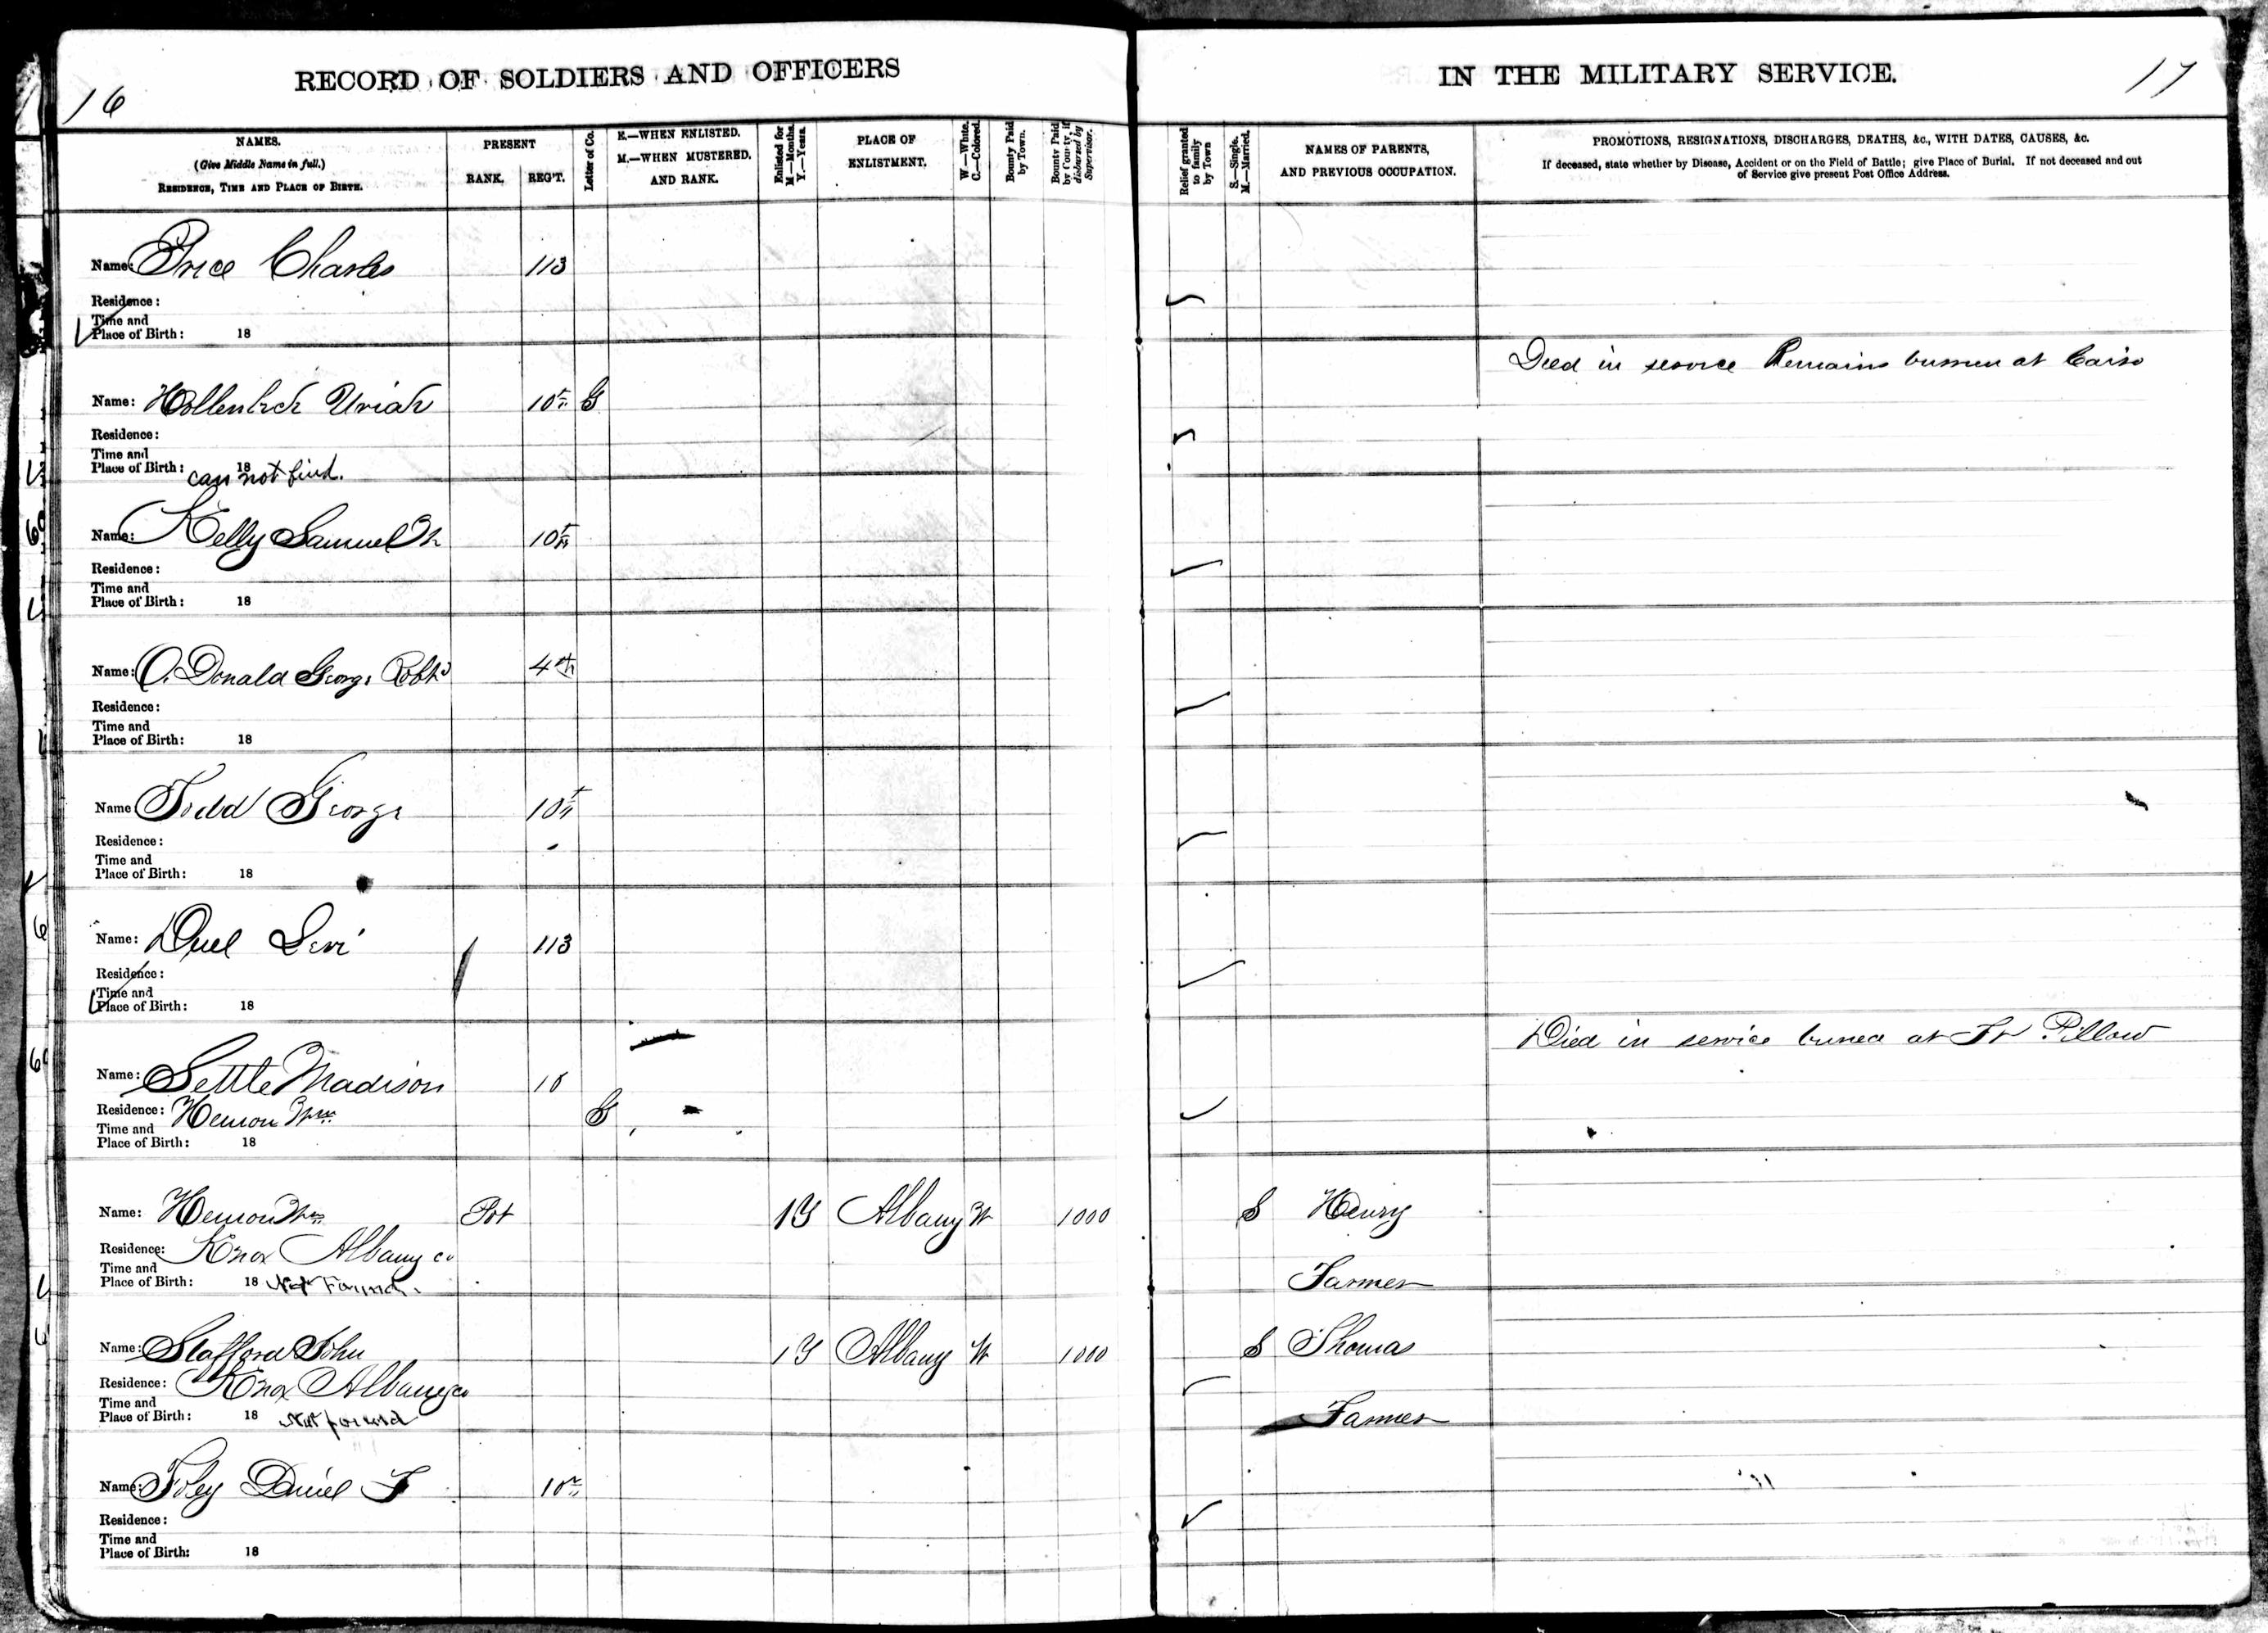 16
RECORD OF SOLDIERS AND OFFICERS
NAMES.
(Give Middle Name in full.)
RESIDENCE, TIME AND PLACE OF BIRTH.
PRESENT
RANK. REG'T.
Letter of Co.
E.—WHEN ENLISTED.
M.—WHEN MUSTERED.
AND RANK.
Enlisted for
M—Months.
Y.—Years.
PLACE OF
ENLISTMENT.
W.—White.
C.—Colored.
Bounty Paid
by Town.
Bounty Paid
by County, if
disbursed by
Supervisor.
Name: Price Charles 113
Residence:
Time and
Place of Birth: 18
Name: Hollenbeck Uriah 10th G
Residence:
Time and
Place of Birth: 18
can not find.
Name: Kelly Samuel 10th
Residence:
Time and
Place of Birth: 18
Name: O. Donald George Robt 4th
Residence:
Time and
Place of Birth: 18
Name Todd George 10th
Residence:
Time and
Place of Birth: 18
Name: Duel Levi 113
Residence:
Time and
Place of Birth: 18
Name: Settle Madison 10
Residence: Hemon Wm G
Time and
Place of Birth: 18
Name: Hemon Wm Pvt 1Y Albany W 1000
Residence: Knox Albany co
Time and
Place of Birth: 18 Not Found.
Name: Stafford John 1Y Albany W 1000
Residence: Knox Albany co
Time and
Place of Birth: 18 Not found
Name: Foley Daniel F 10th
Residence:
Time and
Place of Birth: 18
IN THE MILITARY SERVICE.
17
Relief granted
to family
by Town
S.—Single.
M.—Married.
NAMES OF PARENTS,
AND PREVIOUS OCCUPATION.
PROMOTIONS, RESIGNATIONS, DISCHARGES, DEATHS, &c., WITH DATES, CAUSES, &c.
If deceased, state whether by Disease, Accident or on the Field of Battle; give Place of Burial. If not deceased and out
of Service give present Post Office Address.
Died in service Remains buried at Cairo
Died in service buried at Ft Pillow
S Henry
Farmer
S Thomas
Farmer